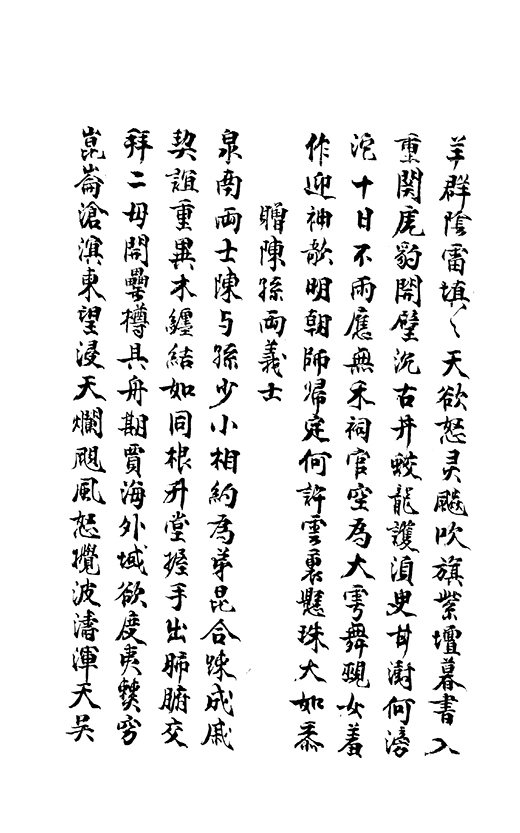 羊群陰雷填〻天欲怒灵飈吹旗紫壇暮書入
重関虎豹閉壁沉古井蛟龍護湏臾甘澍何滂
沱十日不雨應無禾祠官空為大雩舞覡女羞
作迎神歌明朝師歸定何許雲裏懸珠大如黍
贈陳孫両義士
泉南両士陳与孫少小相約為弟昆合踈成戚
契誼重異木纏結如同根升堂握手出肺腑交
拜二母開罍樽具舟期賈海外域欲度夷獠窮
崑崙滄溟東望浸天爛颶風怒攪波濤渾天吴